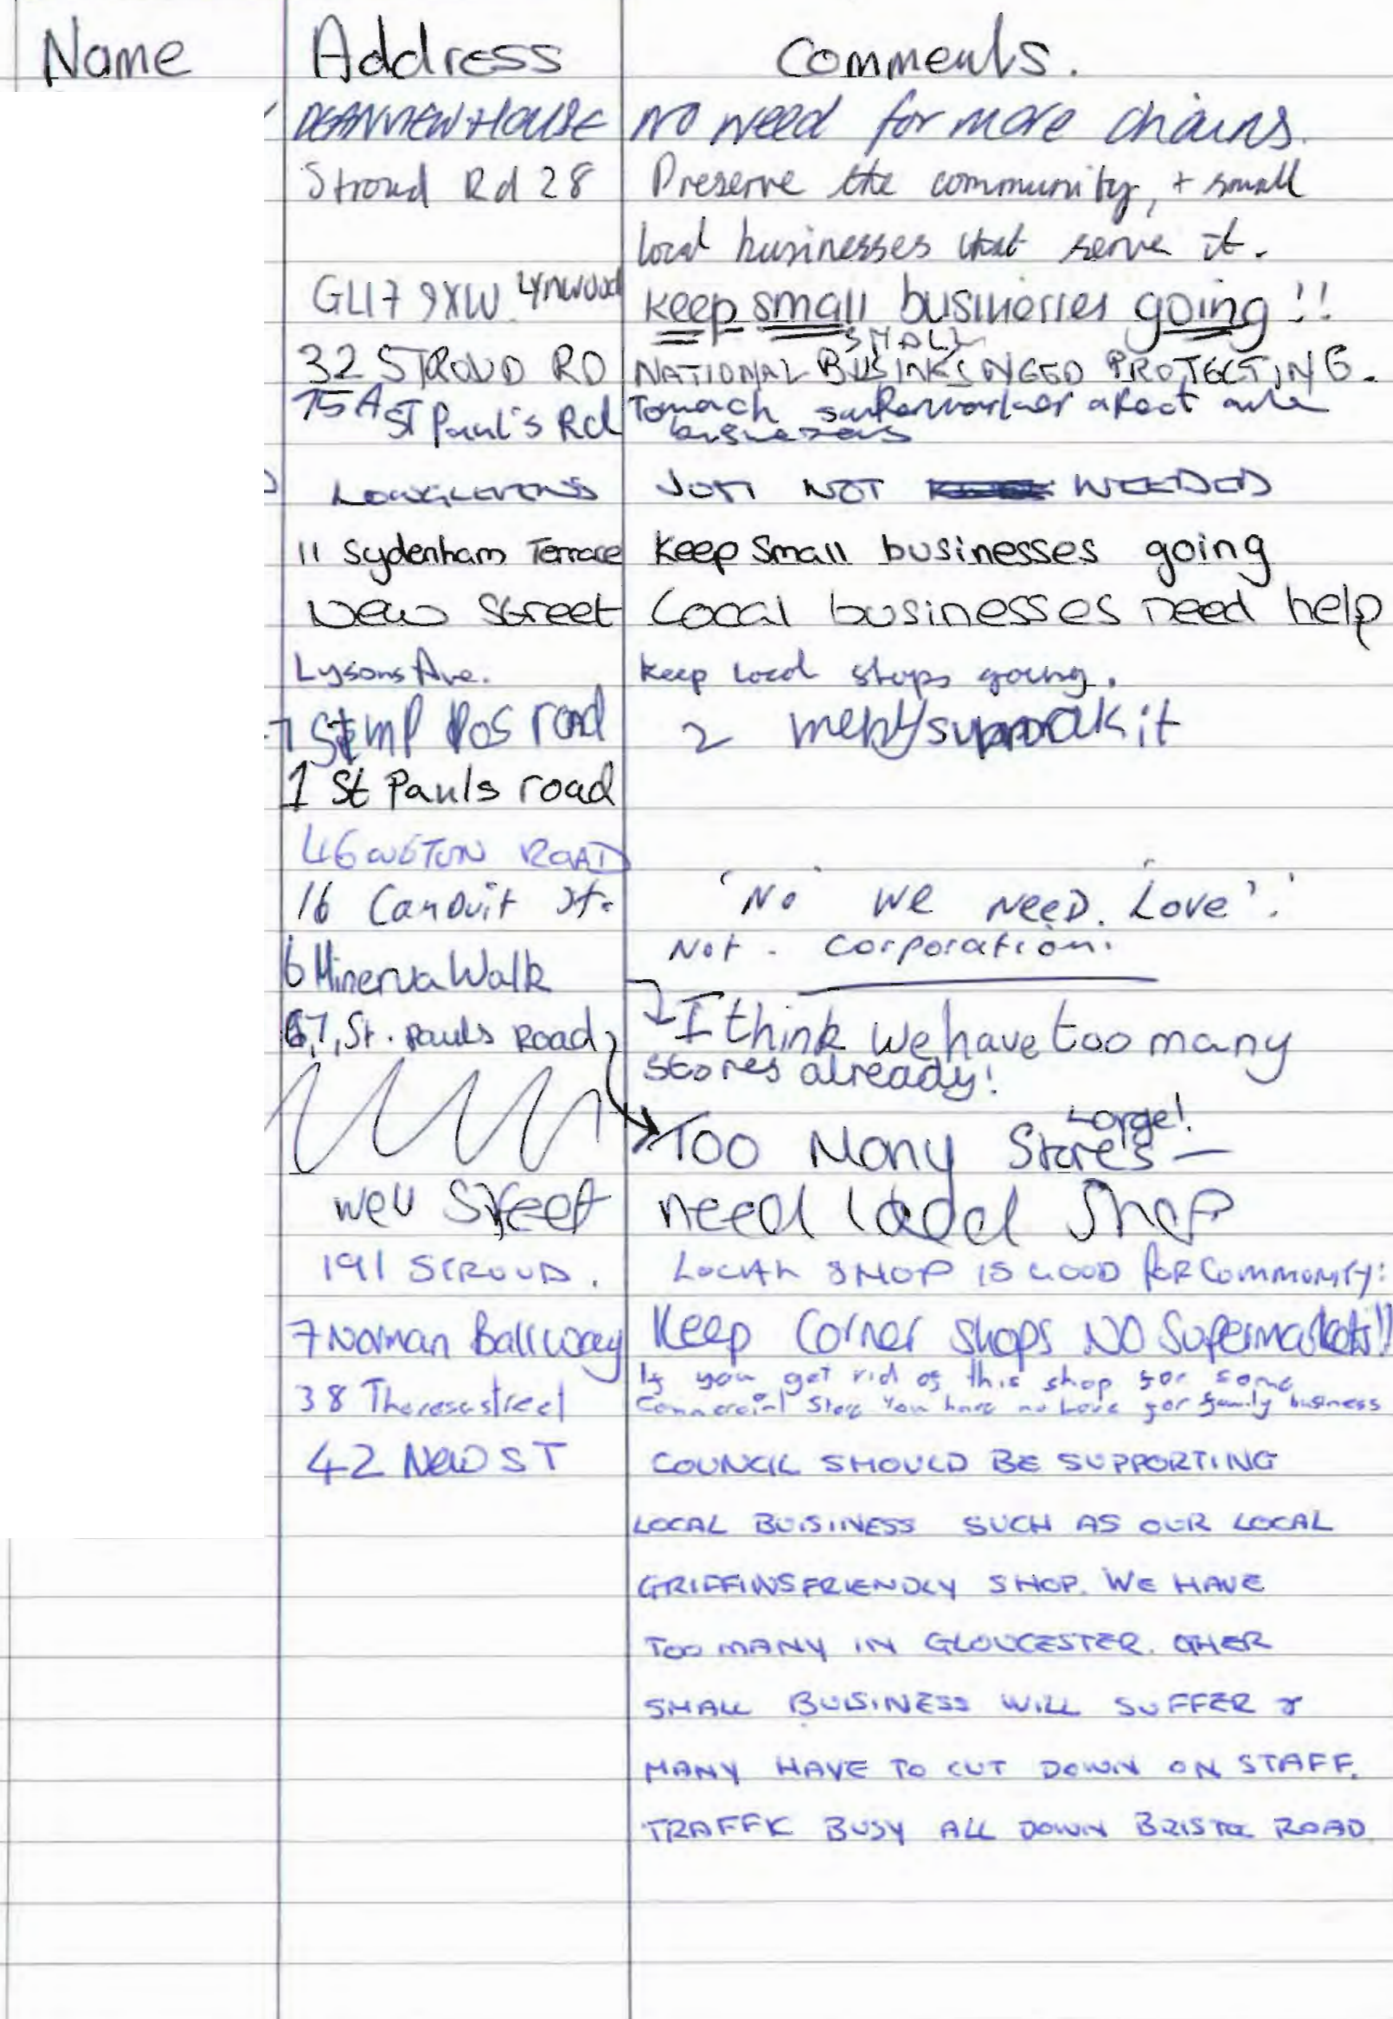 Name Address Comments.
DEANVIEW HOUSE NO need for more chains.
Stroud Rd 28 Preserve the community, + small
local businesses that serve it.
GL17 9XW Lynwood keep small businesses going!!
SMALL
32 STROUD RD NATIONAL NEED PROTECTING.
75A St Paul's Rd supermarket
businesses
LONGLEVENS JUST NOT NEEDED
11 Sydenham Terrace Keep Small businesses going
New Street Local businesses need help
Lysons Ave. Keep local shops going.
road 2 it
1 St Pauls road
46 ROAD
16 Canduit St. 'No we need. Love'.'
Not - corporation.
6 Minerva Walk
I think we have too many
67, St. Pauls Road
stores already!
Large!
Too Many Stores —
Street need Shop
191 STROUD. LOCAL SHOP IS GOOD FOR COMMUNITY!
7 Norman Ball way Keep Corner shops NO Supermarkets!!
If you get rid of this shop for some
38 Theresa street Commercial you have no love for family business
42 New ST COUNCIL SHOULD BE SUPPORTING
LOCAL BUISINESS SUCH AS OUR LOCAL
GRIFFINS FRIENDLY SHOP. WE HAVE
TOO MANY IN GLOUCESTER. OTHER
SMALL BUISINESS WILL SUFFER &
MANY HAVE TO CUT DOWN ON STAFF.
TRAFFIC BUSY ALL DOWN BRISTOL ROAD